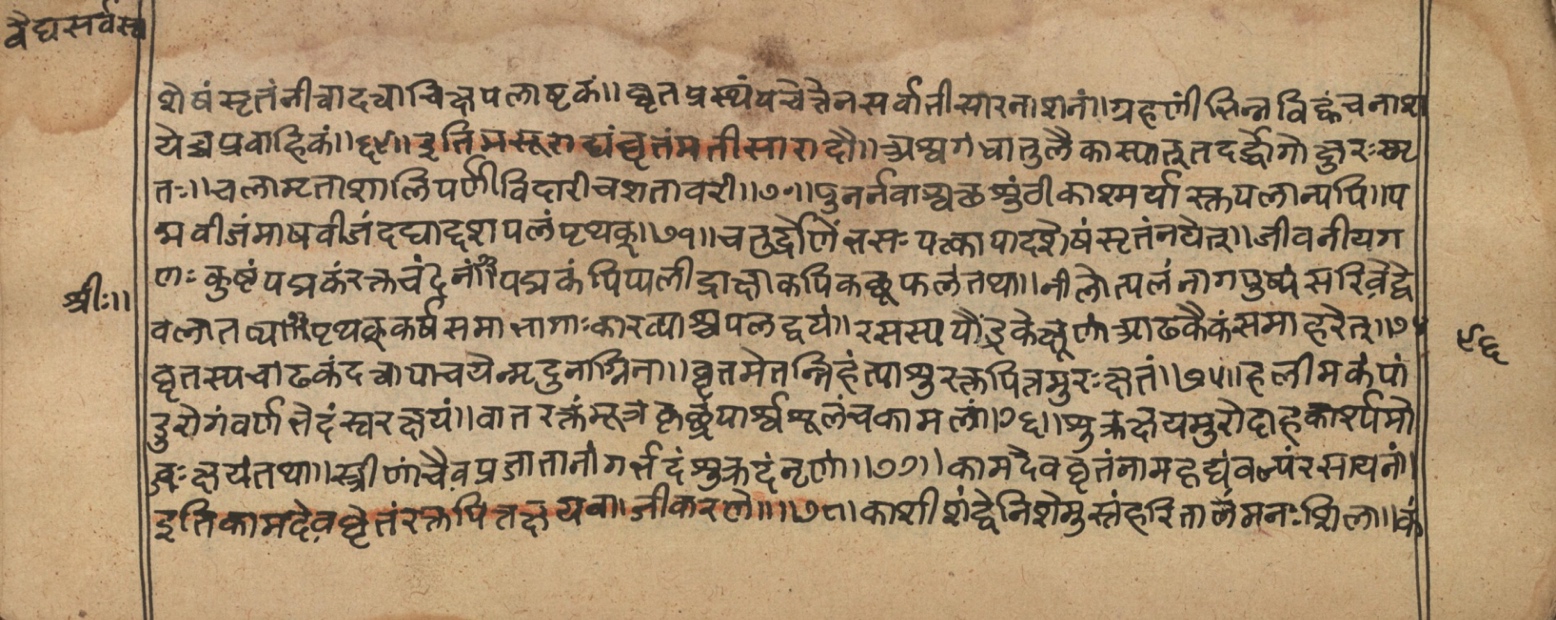 वैद्यसर्वस्व
शेषंसृतंनीत्वादत्वाचित्कपलाष्टकं॥घृतप्रस्थंपचेत्तेनसर्वातीसारनाशनं॥ग्रहणींभिन्नविट्कंचनाश
येच्चप्रवाहिकं॥६९॥इतिमसूराद्यंघृतंमतीसारादौ॥अश्वगंधातुलैकास्यात्तदर्द्धोगोक्षुरःस्मृ
तः॥वलामृताशालिपर्णीविदारीचशतावरी॥७०॥पुनर्नवाश्वछशुंठीकाश्मर्यास्तफलान्यपि॥प
द्मवीजंमाषवीजंदद्याद्दशपलंपृथक्॥७१॥चतुर्द्रोणेंभसःपत्कापादशेषंसृतंनयेत्॥जीवनीयग
श्रीः॥
णःकुष्टंपद्मकंरक्तचंदनं॥पद्मकंपिप्पलीद्राक्षाकपिकच्छूफलंतथा॥नीलोत्पलंनागपुष्पंसरिवेद्वे
वलातथा॥पृथक्कर्षसमाभागाःकारव्याश्चपलद्वयं॥रसस्यपौंड्रकेक्षूणांआढकैकंसमाहरेत्॥७४
९६
घृतस्यचाढकंदत्वापाचयेन्मृदुनाग्निना॥घृतमेतन्निहंत्याशुरक्तपित्तमुरःक्षतं॥७५॥हलीमकंपां
डुरोगंवर्णभेदंस्वरक्षयं॥वातरक्तंमूत्रकृछ्रंपार्श्वशूलंचकामलां॥७६॥शुक्रक्षयमुरोदाहंकार्श्यमो
जःक्षयंतथा॥स्त्रीणांचैवप्रजातानांगर्भदंशुक्रदंनृणां॥७७॥कामदेवघृतंनामहृद्यंवल्यंरसायनं॥
इतिकामदेवघृतंरक्तपित्तक्षयवाजीकरणे॥॥७८॥काशीशंद्वेनिशेमुस्तंहरितालंमनःशिला॥कं